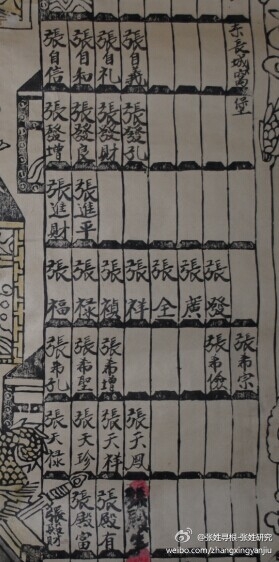 东長城堡
張自礼
張自知
張自信
張發孔
張發財
張發良
張發增
張進平
張進財
張發
張廣
張全
張祥
張禎
張禄
張福
張希宗
張希儉
張希增
張希聖
張希孔
張天鳳
張天祥
張天珍
張天禄
張殿有
張殿富
張殿財
@张姓寻根-张姓研究
weibo.com/zhangxingyanjiu